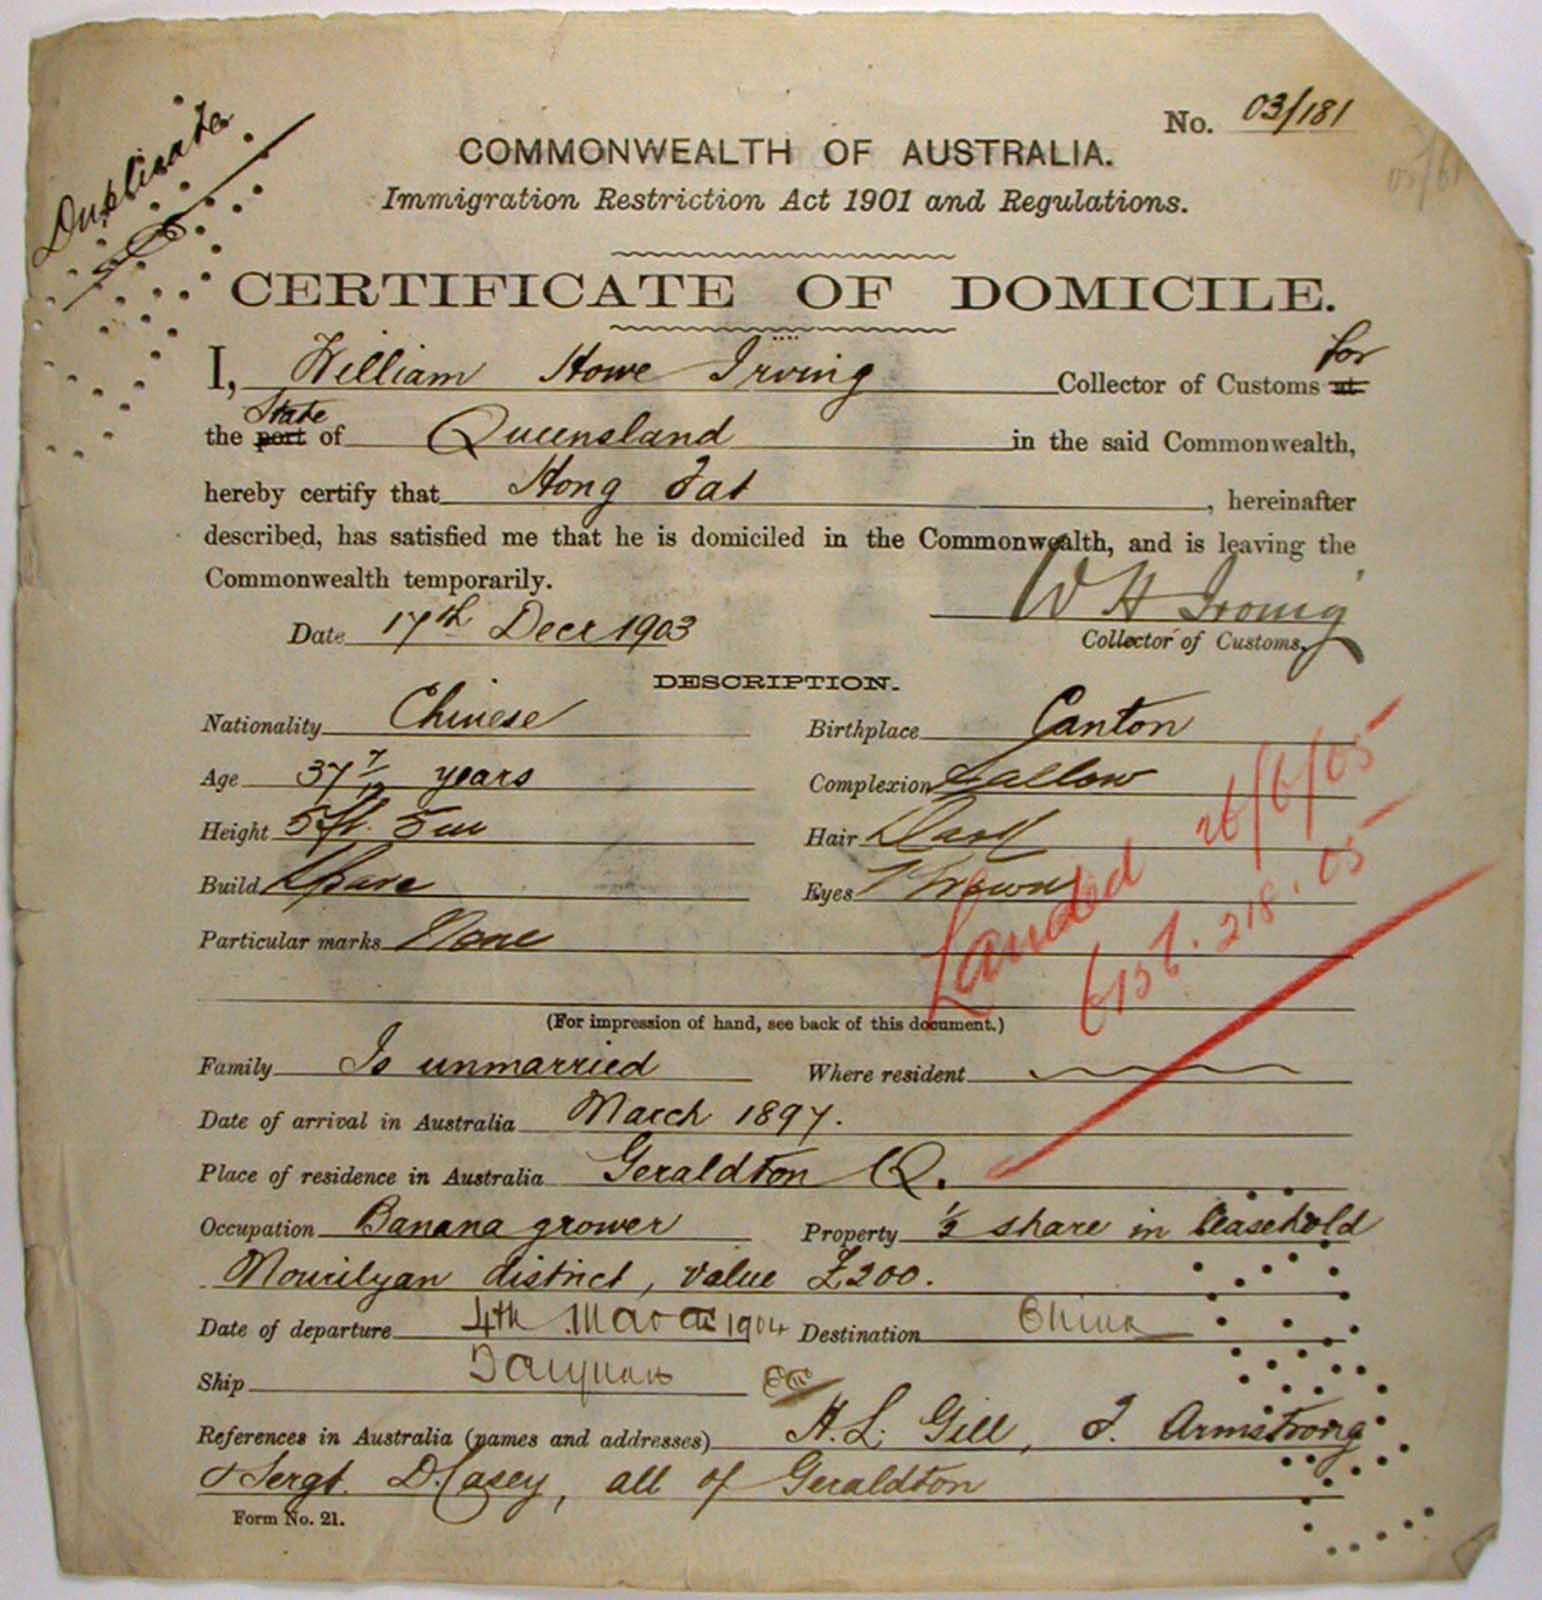 Duplicate
No. 03/181
COMMONWEALTH OF AUSTRALIA.
Immigration Restriction Act 1901 and Regulations.
CERTIFICATE OF DOMICILE.
I, William Howe Irving Collector of Customs at for
the port State of Queensland in the said Commonwealth,
hereby certify that Hong Fat, hereinafter
described, has satisfied me that he is domiciled in the Commonwealth, and is leaving the
Commonwealth temporarily.
W H Irving
Date 17th Decr 1903
Collector of Customs.
DESCRIPTION.
Nationality Chinese Birthplace Canton
Age 37 7/12 years Complexion Sallow
Height 5ft. 5in Hair Dark
Build Spare Eyes Brown
Particular marks None
Landed 26/6/05
218.05
(For impression of hand, see back of this document.)
Family Is unmarried Where resident
Date of arrival in Australia March 1897.
Place of residence in Australia Geraldton Q.
Occupation Banana grower Property ½ share in leasehold
Mourilyan district, value £200.
Date of departure 4th March 1904 Destination China
Ship Taiyuan
References in Australia (names and addresses) H. L. Gill, T. Armstrong
& Sergt. D. Casey, all of Geraldton
Form No. 21.